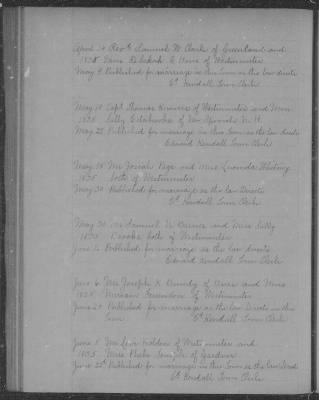 April 24 Revd Samuel W Clark of Greenland and
1835 Rebekah E Howe of Westminster
May 9 Published for marriage in this Town as the law directs
Ed Kendall Town Clerk
May 18 Capt Thomas of Westminster and Mrs
1835 Sally of New Ipswich N H
May 25 Published for marriage in this Town as the law directs
Edward Kendall Town Clerk
May 18 Mr Josiah Page and Miss Lucinda Whitney
1835 both of Westminster
May 30 Published for marriage as the law directs
Ed Kendall Town Clerk
May 30 Mr Samuel and Miss Sally
1835 Brooks both of Westminster
June Published for marriage as the law directs
Edward Kendall Town Clerk
June 6 Mr Joseph and Miss
1835 of Westminster
June 20 Published for marriage as the law directs in this
Town Ed Kendall Town Clerk
June Mr Levi of Westminster and
1835 Miss of Gardner
June 22d Published for marriage in this Town as the law directs
Ed Kendall Town Clerk